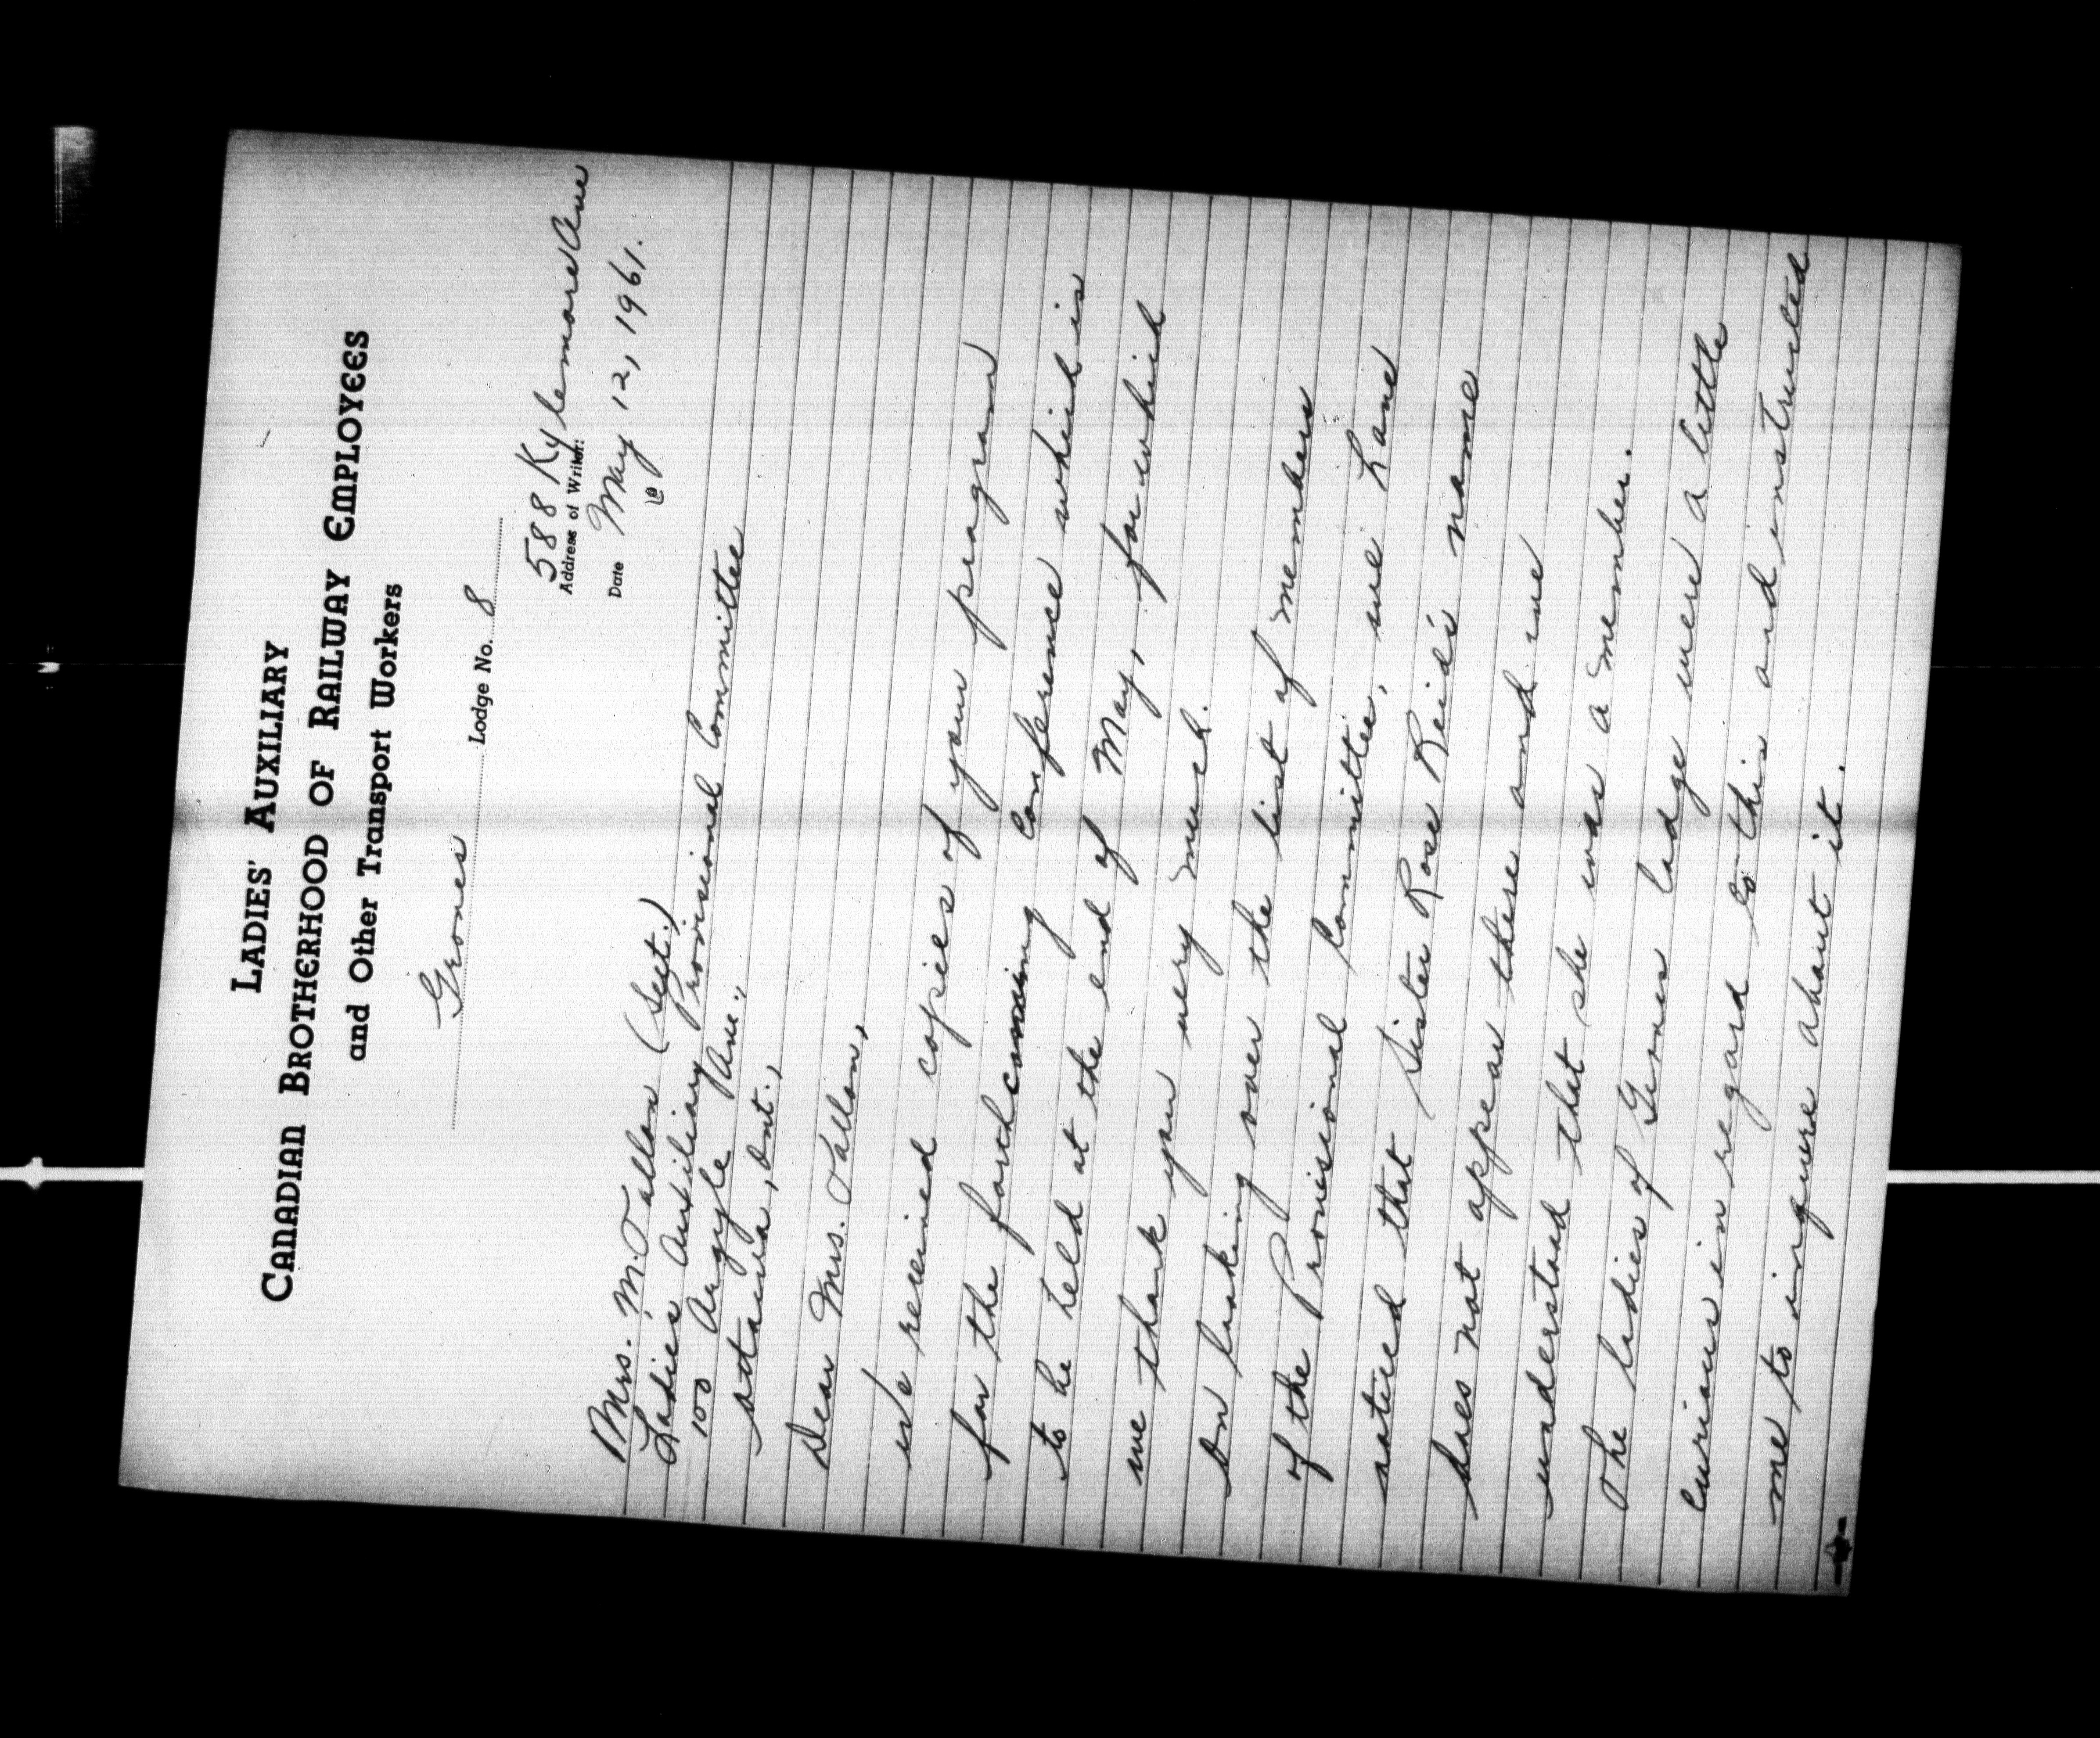 LADIES' AUXILIARY
CANADIAN BROTHERHOOD OF RAILWAY EMPLOYEES
and Other Transport Workers
Lodge No. 8
588 Kylemore Ave
Address of Writer:
Date May 12, 1961.
Mrs. M. Tallon (Sect.)
Ladies Auxiliary Provisional Committee
100 Argyle Ave.,
Ottawa, Ont.,
Dear Mrs. Tallon,
We received copies of your program
for the forthcoming Conference which is
to be held at the end of May, for which
we thank you very much.
On looking over the list of members
of the Provisional Committee, we have
noticed that Sister Rose Reid's name
does not appear there and we
understand that she was a member.
The ladies of lodge were a little
curious in regard to this and instructed
me to inquire about it.